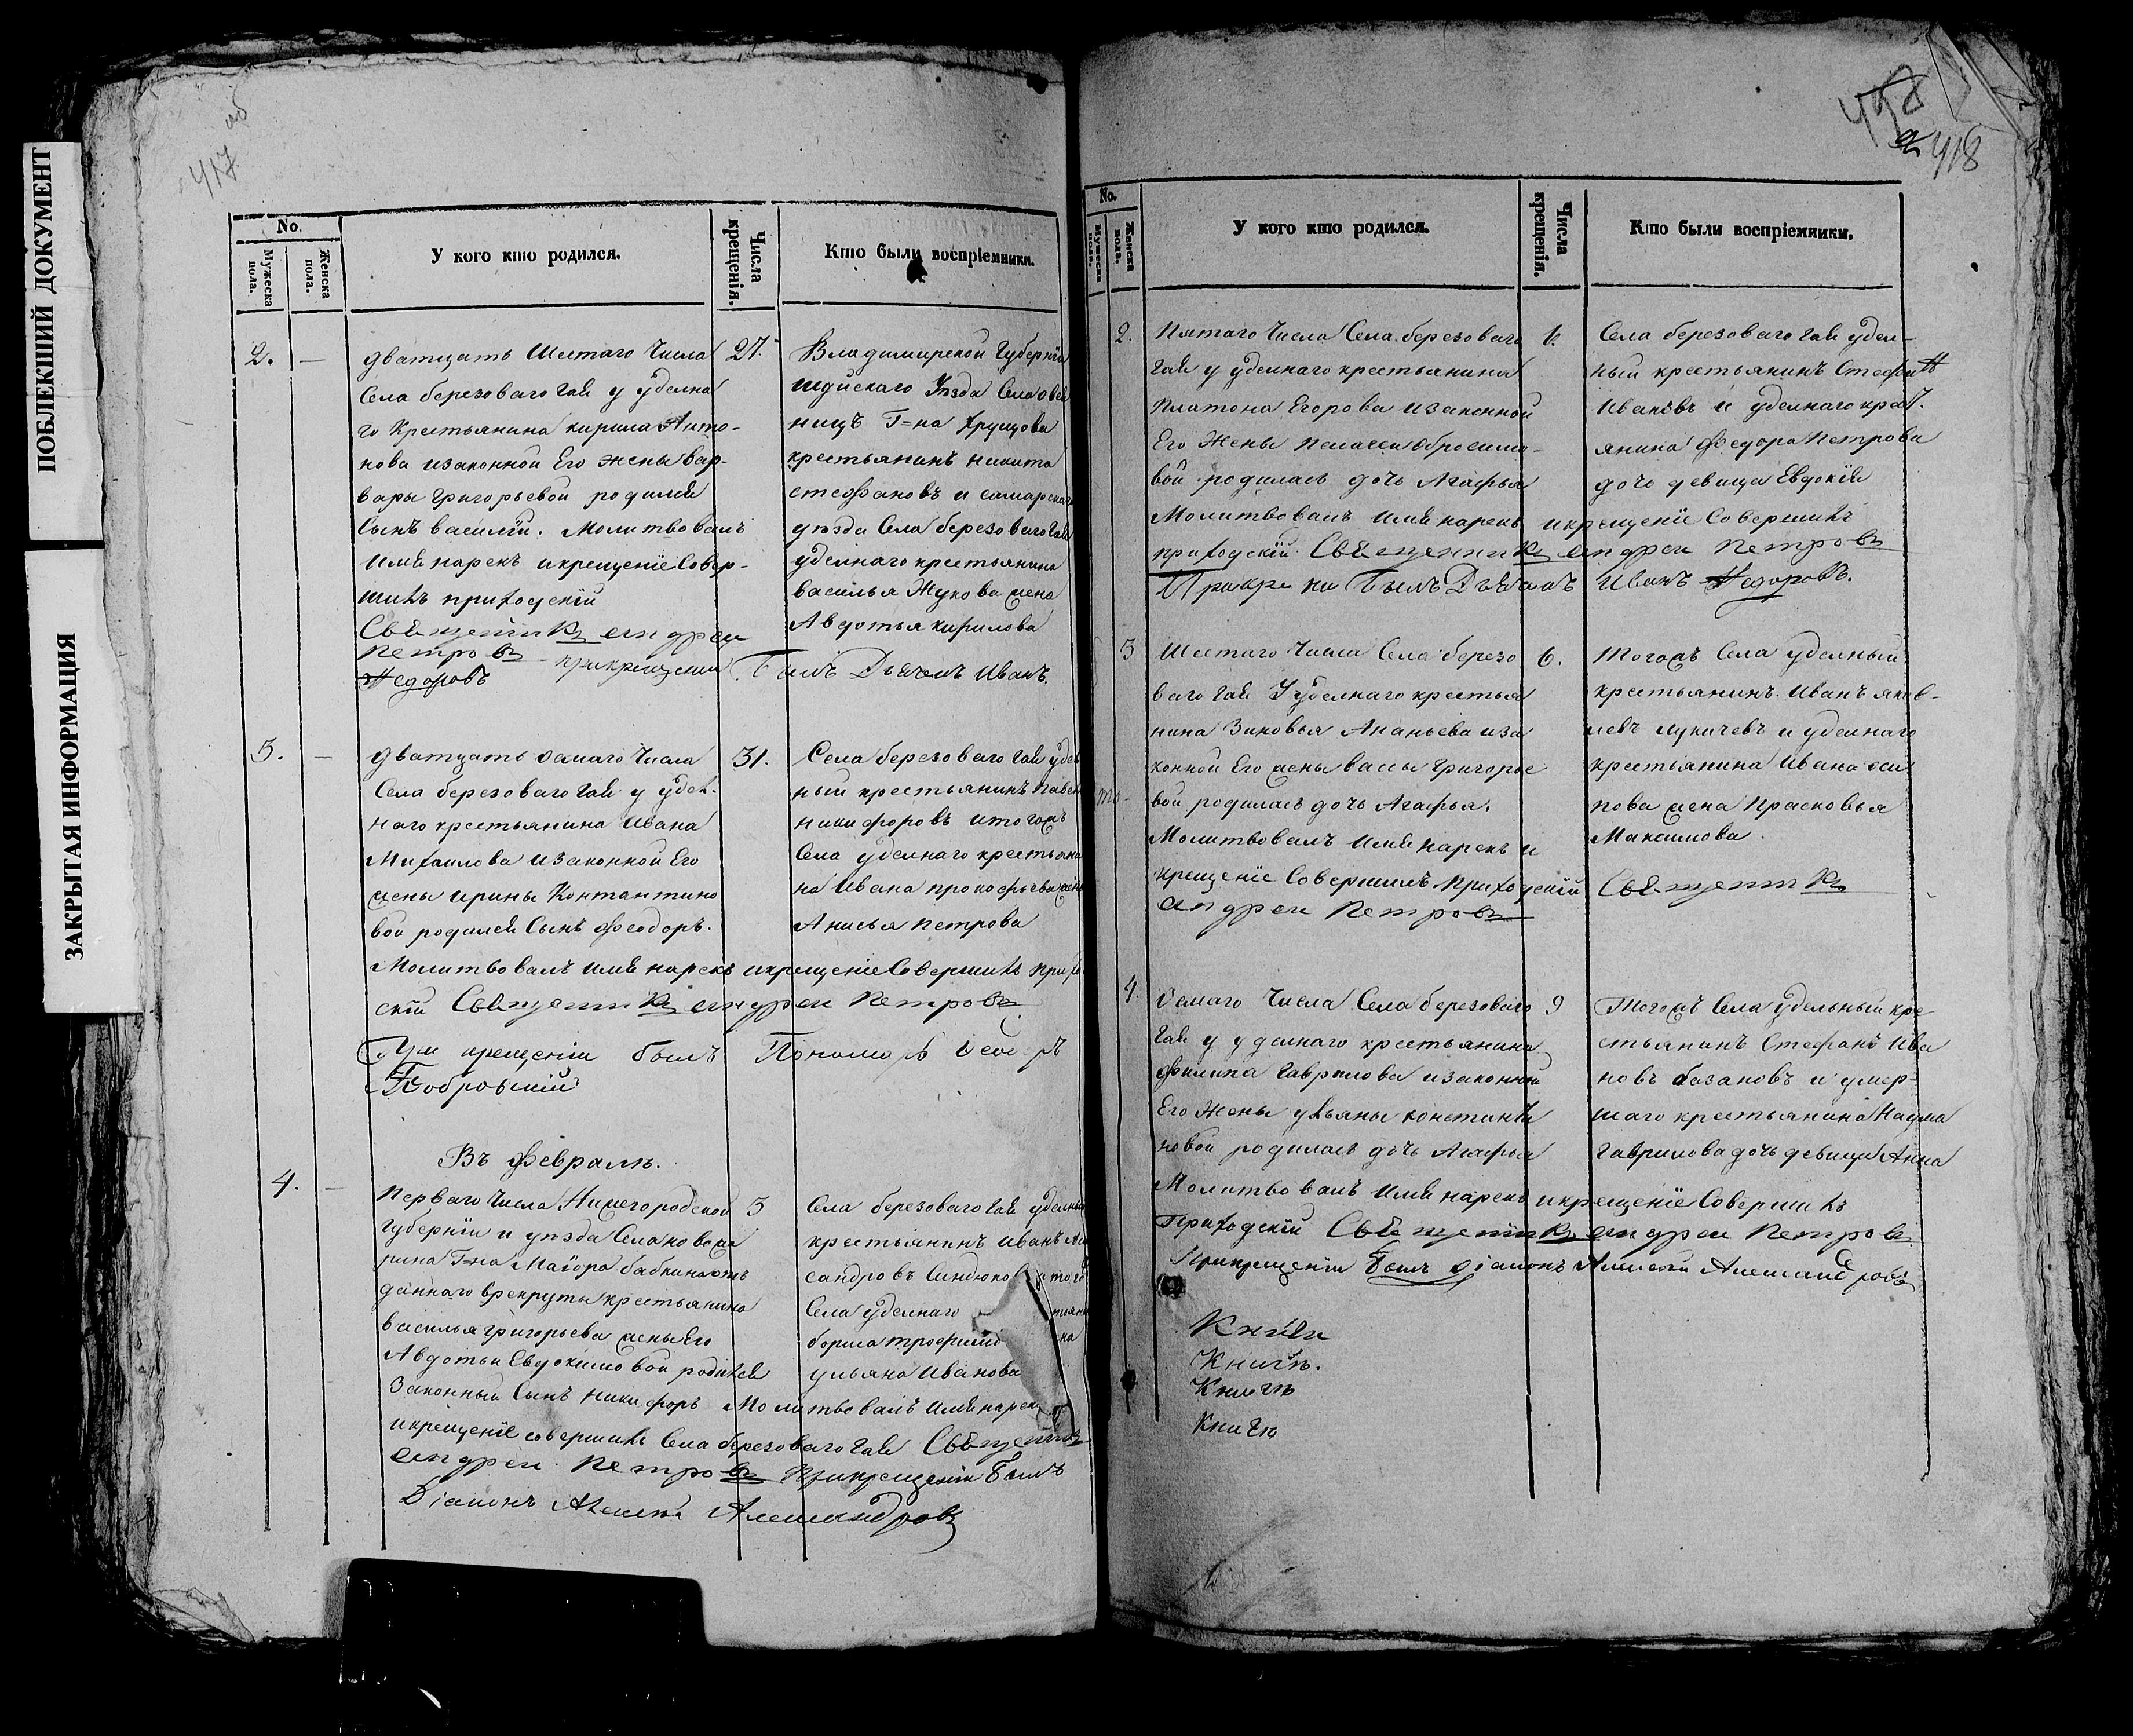 ПОБЛЕКШИЙ ДОКУМЕНТ
ЗАКРЫТАЯ ИНФОРМАЦИЯ
417
об
No.
Мужеска пола.
Женска пола.
У кого кто родился.
Числа крещенія.
Кто были воспріемники.
2. — дватцать Шестаго Числа
Села березоваго гая у уделна
го Крестьянина кирила Анто-
нова изаконной Его жены вар-
вары григорьевой родился
Сынъ василій. Молитвовалъ
имя нарекъ икрещеніе Совер-
шилъ приходскій
Священникъ андреи
Петровъ прикрещении былъ Дьячекъ Иванъ
Федоровъ
27. Владимирской Губерніи
шуйскаго Уезда Села
нищъ Г=на хрущова
крестьянинъ никита
стефановъ и самарскаго
уезда Села березоваго гая
уделнаго крестьянина
василья Жукова жена
Авдотья кирилова
3. — дватцать осмаго Числа
Села березоваго гая у удел-
наго крестьянина Ивана
Михаилова изаконной Его
жены ирины Контантино
вой родился Сынъ Феодоръ.
Молитвовалъ имя нарекъ икрещеніе Совершилъ прихо
скій Священникъ андреи Петровъ
При крещеніи былъ Пономарь
Бобровскій
31. Села березоваго гая удел
ный крестьянинъ павел
никифоровъ итогожъ
Села уделнаго крестьяни
на Ивана прокофьева жена
Анисья петрова
Въ Феврале.
4. — Перваго Числа Нижегородской
губерніи и уезда Села
рина Г=на Маіора бабкина отъ
даннаго врекруты крестьянина
василья григорьева жены Его
Авдотьи Евдокимовой родился
Законный Сынъ никифоръ Молитвовалъ имя нарекъ
икрещеніе совершилъ Села березоваго гая Священникъ
андреи Петровъ прикрещеніи былъ
Діаконъ Алексей Александровъ
3 Села березоваго гая уделный
крестьянинъ иванъ Алек
сандровъ Синдюко итого
Села уделнаго
бориса трофимо на
ульяна Иванова
418
No.
Мужеска пола.
Женска пола.
У кого кто родился.
Числа крещенія.
Кто были воспріемники.
2. Пятаго Числа Села березоваго
гая у уделнаго крестьянина
Платона Егорова изаконной
Его Жены Пелагеи Обросимо-
вой родилась дочь Агафья
Молитвовалъ имя нарекъ икрещеніе Совершилъ
приходскій Священникъ андреи Петровъ
При кре былъ Дьячекъ Иванъ Федоровъ.
6. Села березоваго гая удел-
ный крестьянинъ Стефанъ
Ивановъ и уделнаго крест.
янина Федора Петрова
дочь девица Евдокія
3 Шестаго Числа Села березо
ваго гая У уделнаго крестья
нина Зиновья Ананьева иза
конной Его жены вассы григорье
вой родилась дочь Агафья.
Молитвовалъ имя нарекъ и
крещеніе Совершилъ Приходскій Священникъ
андреи Петровъ
6. Тогожъ Села уделный
крестьянинъ Иванъ яков-
левъ лукичевъ и уделнаго
крестьянина Ивана оси
пова жена Прасковья
Максимова.
4. Осмаго Числа Села березоваго
гая у уделнаго крестьянина
филипа гаврилова изаконной
Его Жены ульяны константи
новой родилась дочь Агафья
Молитвовалъ имя нарекъ икрещеніе Совершилъ
Приходскій Священникъ андреи Петровъ
Прикрещеніи былъ діаконъ Алексей Александровъ
9 Тогожъ Села удельный кре
стьянинъ Стефанъ Ива
новъ базановъ и умер-
шаго крестьянина Наума
гаврилова дочь девица Анна
Книги
Книгъ.
Книгъ
Книгъ